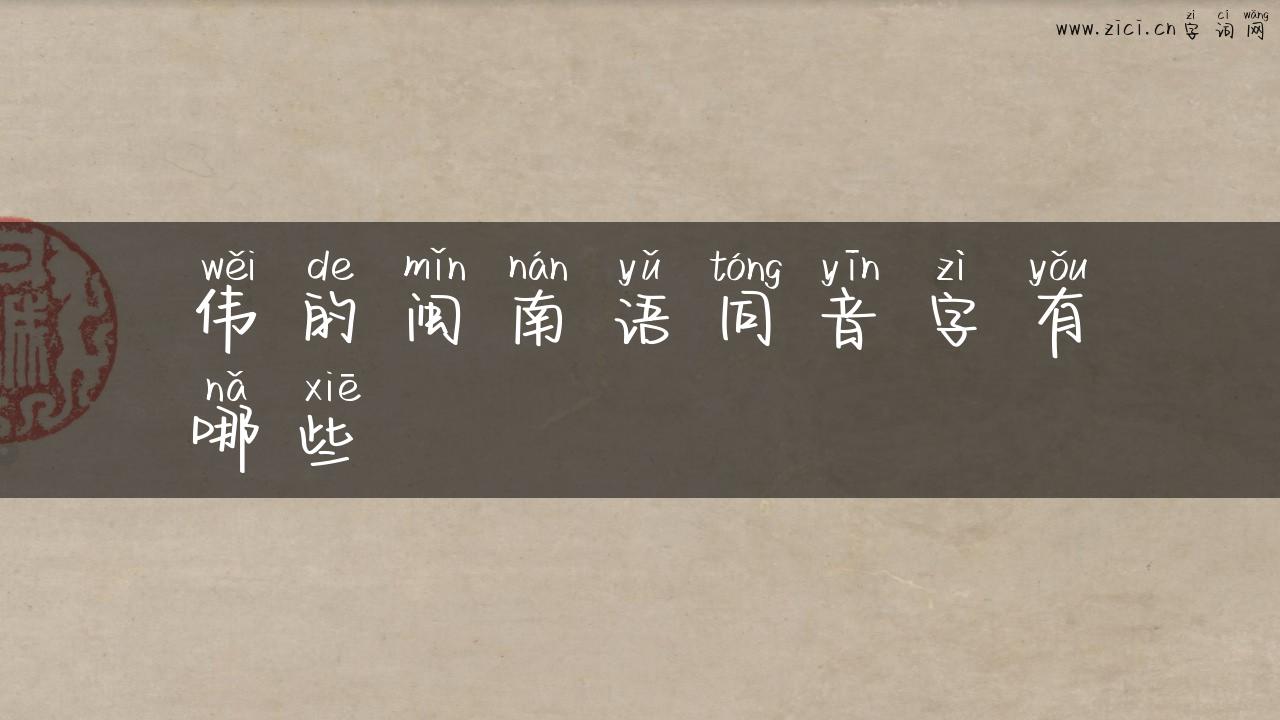 zì cí wǎng
www.zici.cn字词网
wěi de mǐn nán yǔ tóng yīn zì yǒu
伟的闽南语同音字有
nǎ xiē
哪些